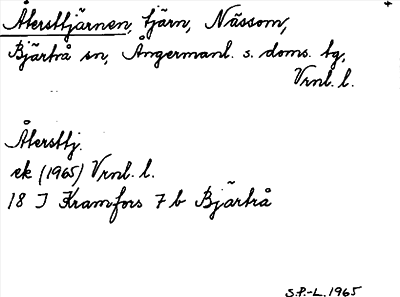 Återsttjärnen, tjärn, Nässom,
Bjärtrå sn, Ångermanl. s. doms. tg,
Vrnl. l.
Återsttj.
ek (1965) Vrnl. l.
18 J Kramfors 7 b Bjärtrå
S.P.-L. 1965